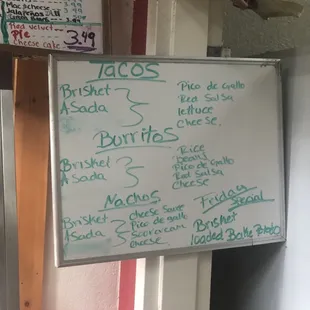 Mac & Cheese
Jalapenos
Green Beans
Red velvet
Pie
Cheese cake
3.49
Tacos
Brisket
ASada
Pico de Gallo
Red Salsa
lettuce
Cheese.
Burritos
Brisket
ASada
Rice
Beans
Pico de Gallo
Red Salsa
Cheese
Nachos
Brisket
ASada
cheese Sauce
Pico de gallo
Sourcream
cheese
Friday
Special
Brisket
loaded Bake Potato